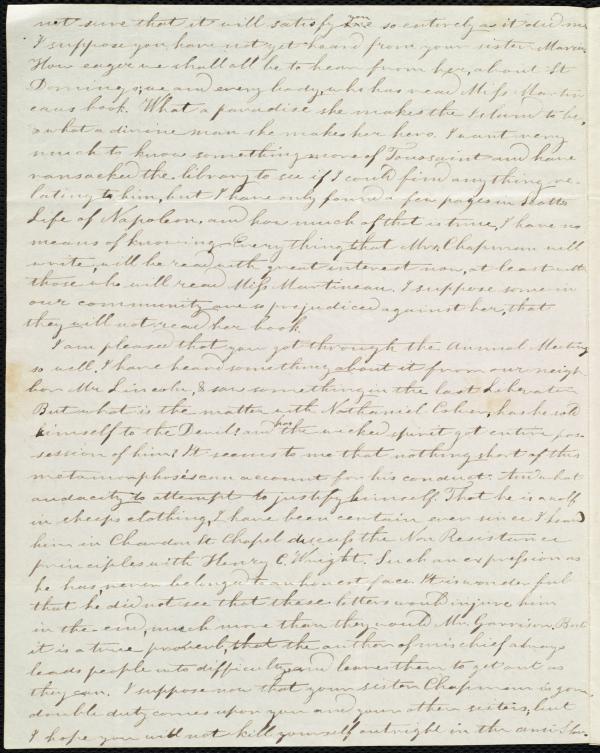 not sure that it will satisfy you so entirely as it did me
I suppose you have not yet heard from your sister Maria
How eager we shall all be to hear from her, about St
Domingo; we and every body, who has read Miss Martin
eaus book. What a paradise she makes the Island to be,
& what a divine man she makes her hero. I want very
much to know something more of Toussaint and have
ransacked the library to see if I could find anything re-
lating to him, but I have only found a few pages in Scotts
Life of Napoleon, and how much of that is true, I have no
means of knowing. Every thing that Mrs. Chapman will
write, will be read with great interest now, at least with
those who will read Miss Martineau. I suppose some in
our community are so prejudiced against her, that
they will not read her book.
I am pleased that you got through the Annual Meeting
so well. I have heard something about it from our neigh
bor Mr. Lincoln, & saw something in the last Liberator
But what is the matter with Nathaniel Colver, has he sold
himself to the Devil? and has the wicked spirit got entire pos-
session of him? It seems to me that nothing short of this
metamorphosis can account for his conduct. And what
audacity to attempt to justify himself. That he is a wolf
in sheeps clothing, I have been certain ever since I heard
him in Chardon St Chapel discuss the Non Resistance
principles with Henry C. Wright. Such an expression as
he has, never belonged to an honest face. It is wonderful
that he did not see that these letters would injure him
in the end, much more than they would Mr. Garrison. But
it is a true proverb, that the author of mischief always
leads people into difficulty, and leaves them to get out as
they can. I suppose now that your sister Chapman is gone
double duty comes upon you and your other sisters, but
I hope you will not kill yourself outright in the anti Slav-